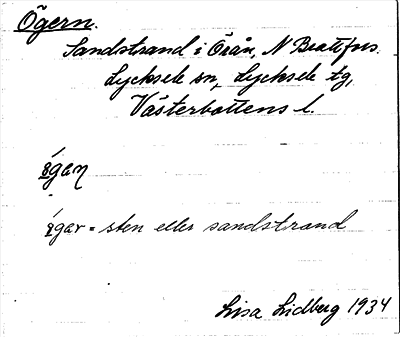 Ögern.
Sandstrand i Öran, N
Lycksele sn, Lycksele tg,
Västerbottens l.
sten eller sandstrand
Lisa Lidberg 1934